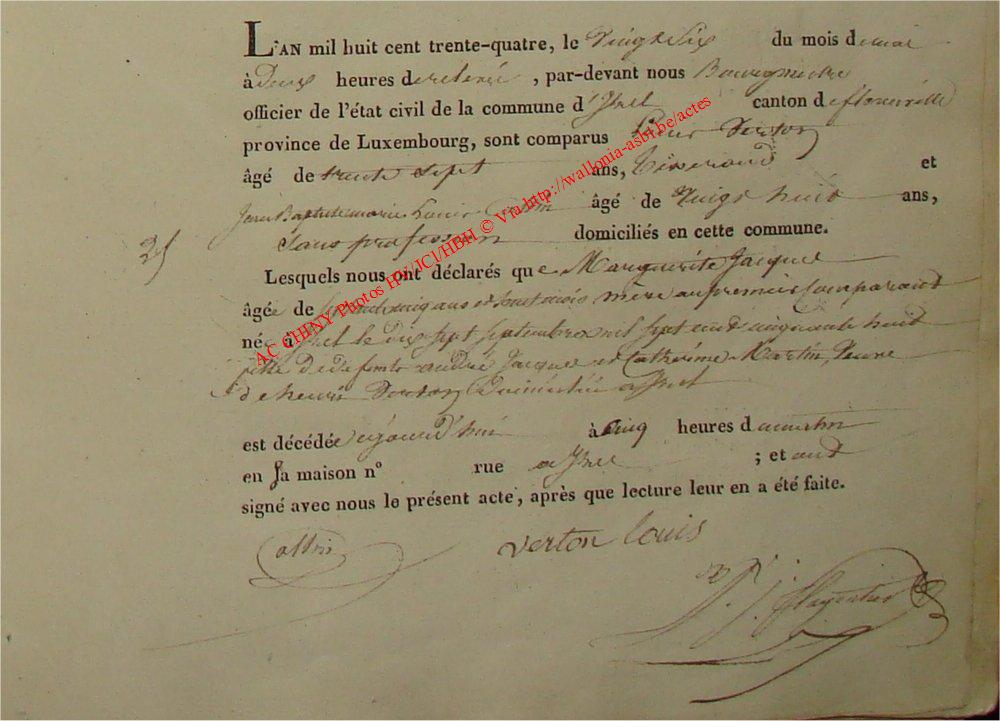 L'AN mil huit cent trente-quatre, le vingt Six du mois de mai
à deux heures de relevée, par-devant nous Bourgmestre
officier de l'état civil de la commune d'Izel canton de florenville
province de Luxembourg, sont comparus Louis Verton
âgé de trente Sept ans, tisserand et
Jean Baptiste marie Louis âgé de vingt huit ans,
Sans profession domiciliés en cette commune.
25
Lesquels nous ont déclarés que Marguerite Jacques
âgée de mère au premier Comparant
née à Izel le dix Sept Septembre mil Sept cent cinquante huit
fille de défunts andré Jacques et Catherine Martin, Veuve
de henri Verton Domiciliée a Izel
est décédée aujourd'hui à Cinq heures du matin
en Sa maison n° rue a Izel ; et ont
signé avec nous le présent acte, après que lecture leur en a été faite.
verton louis
AC CHINY Photos HW/JCI/HBH © Via http://wallonia-asbl.be/actes